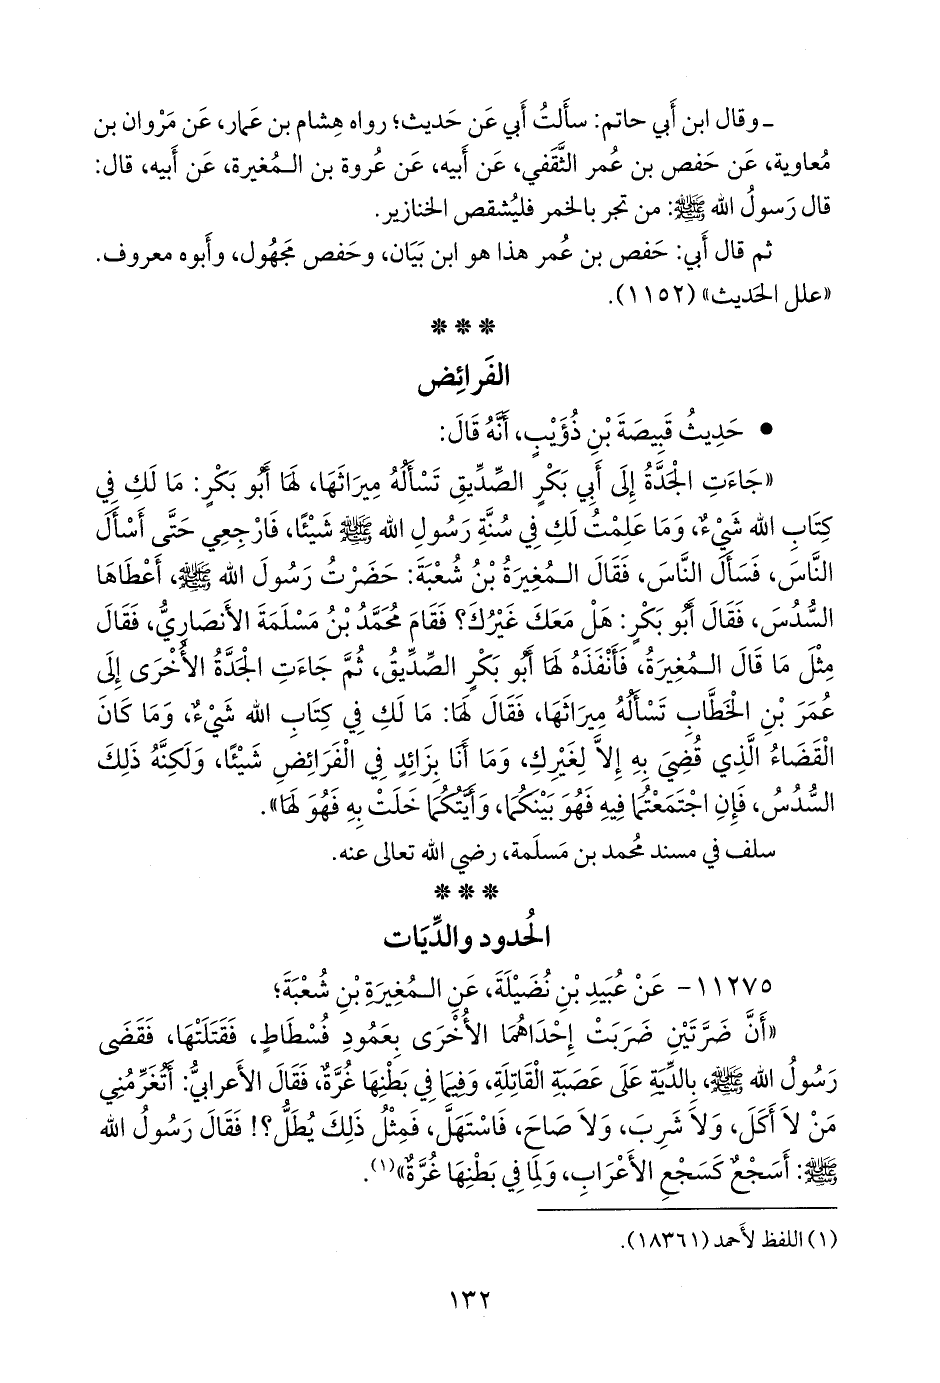 ـ وقال ابن أَبي حاتم: سأَلتُ أَبي عَن حَديث؛ رواه هِشام بن عَمار، عَن مَرْوان بن
مُعاوية، عَن حَفص بن عُمر الثَّقَفي، عَن أَبيه، عَن عُروة بن الـمُغيرة، عَن أَبيه، قال:
قال رَسولُ الله ﷺ: من تجر بالخمر فليُشقص الخنازير.
ثم قال أَبي: حَفص بن عُمر هذا هو ابن بَيَان، وحَفص مَجهُول، وأَبوه معروف.
«علل الحَديث» (١١٥٢).
* * *
الفَرائِض
• حَدِيثُ قَبِيصَةَ بْنِ ذُؤَيْبٍ، أَنَّهُ قَالَ:
«جَاءَتِ الْجَدَّةُ إِلَى أَبِي بَكْرٍ الصِّدِّيقِ تَسْأَلُهُ مِيرَاثَهَا، لَهَا أَبُو بَكْرٍ: مَا لَكِ فِي
كِتَابِ الله شَيْءٌ، وَمَا عَلِمْتُ لَكِ فِي سُنَّةِ رَسُولِ الله ﷺ شَيْئًا، فَارْجِعِي حَتَّى أَسْأَلَ
النَّاسَ، فَسَأَلَ النَّاسَ، فَقَالَ الـمُغِيرَةُ بْنُ شُعْبَةَ: حَضَرْتُ رَسُولَ الله ﷺ، أَعْطَاهَا
السُّدُسَ، فَقَالَ أَبُو بَكْرٍ: هَلْ مَعَكَ غَيْرُكَ؟ فَقَامَ مُحَمَّدُ بْنُ مَسْلَمَةَ الأَنصَارِيُّ، فَقَالَ
مِثْلَ مَا قَالَ الـمُغِيرَةُ، فَأَنْفَذَهُ لَهَا أَبُو بَكْرٍ الصِّدِّيقُ، ثُمَّ جَاءَتِ الْجَدَّةُ الأُخْرَى إِلَى
عُمَرَ بْنِ الْخَطَّابِ تَسْأَلُهُ مِيرَاثَهَا، فَقَالَ لَهَا: مَا لَكِ فِي كِتَابِ الله شَيْءٌ، وَمَا كَانَ
الْقَضَاءُ الَّذِي قُضِيَ بِهِ إِلاَّ لِغَيْرِكِ، وَمَا أَنَا بِزَائِدٍ فِي الْفَرَائِضِ شَيْئًا، وَلَكِنَّهُ ذَلِكَ
السُّدُسُ، فَإِنِ اجْتَمَعْتُمَا فِيهِ فَهُوَ بَيْنَكُمَا، وَأَيَّتُكُمَا خَلَتْ بِهِ فَهُوَ لَهَا».
سلف في مسند مُحمد بن مَسلَمة، رضي الله تعالى عنه.
* * *
الحُدود والدِّيَات
١١٢٧٥- عَنْ عُبَيدِ بْنِ نُضَيْلَةَ، عَنِ الـمُغِيرَةِ بْنِ شُعْبَةَ؛
«أَنَّ ضَرَّتَيْنِ ضَرَبَتْ إِحْدَاهُمَا الأُخْرَى بِعَمُودِ فُسْطَاطٍ، فَقَتَلَتْهَا، فَقَضَى
رَسُولُ الله ﷺ، بِالدِّيَةِ عَلَى عَصَبَةِ الْقَاتِلَةِ، وَفِيمَا فِي بَطْنِهَا غُرَّةٌ، فَقَالَ الأَعرابيُّ: أَتُغَرِّمُنِي
مَنْ لاَ أَكَلَ، وَلاَ شَرِبَ، وَلاَ صَاحَ، فَاسْتَهَلَّ، فَمِثْلُ ذَلِكَ يُطَلُّ؟! فَقَالَ رَسُولُ الله
ﷺ: أَسَجْعٌ كَسَجْعِ الأَعْرَابِ، وَلِمَا فِي بَطْنِهَا غُرَّةٌ»(١).
(١) اللفظ لأَحمد (١٨٣٦١).
١٣٢